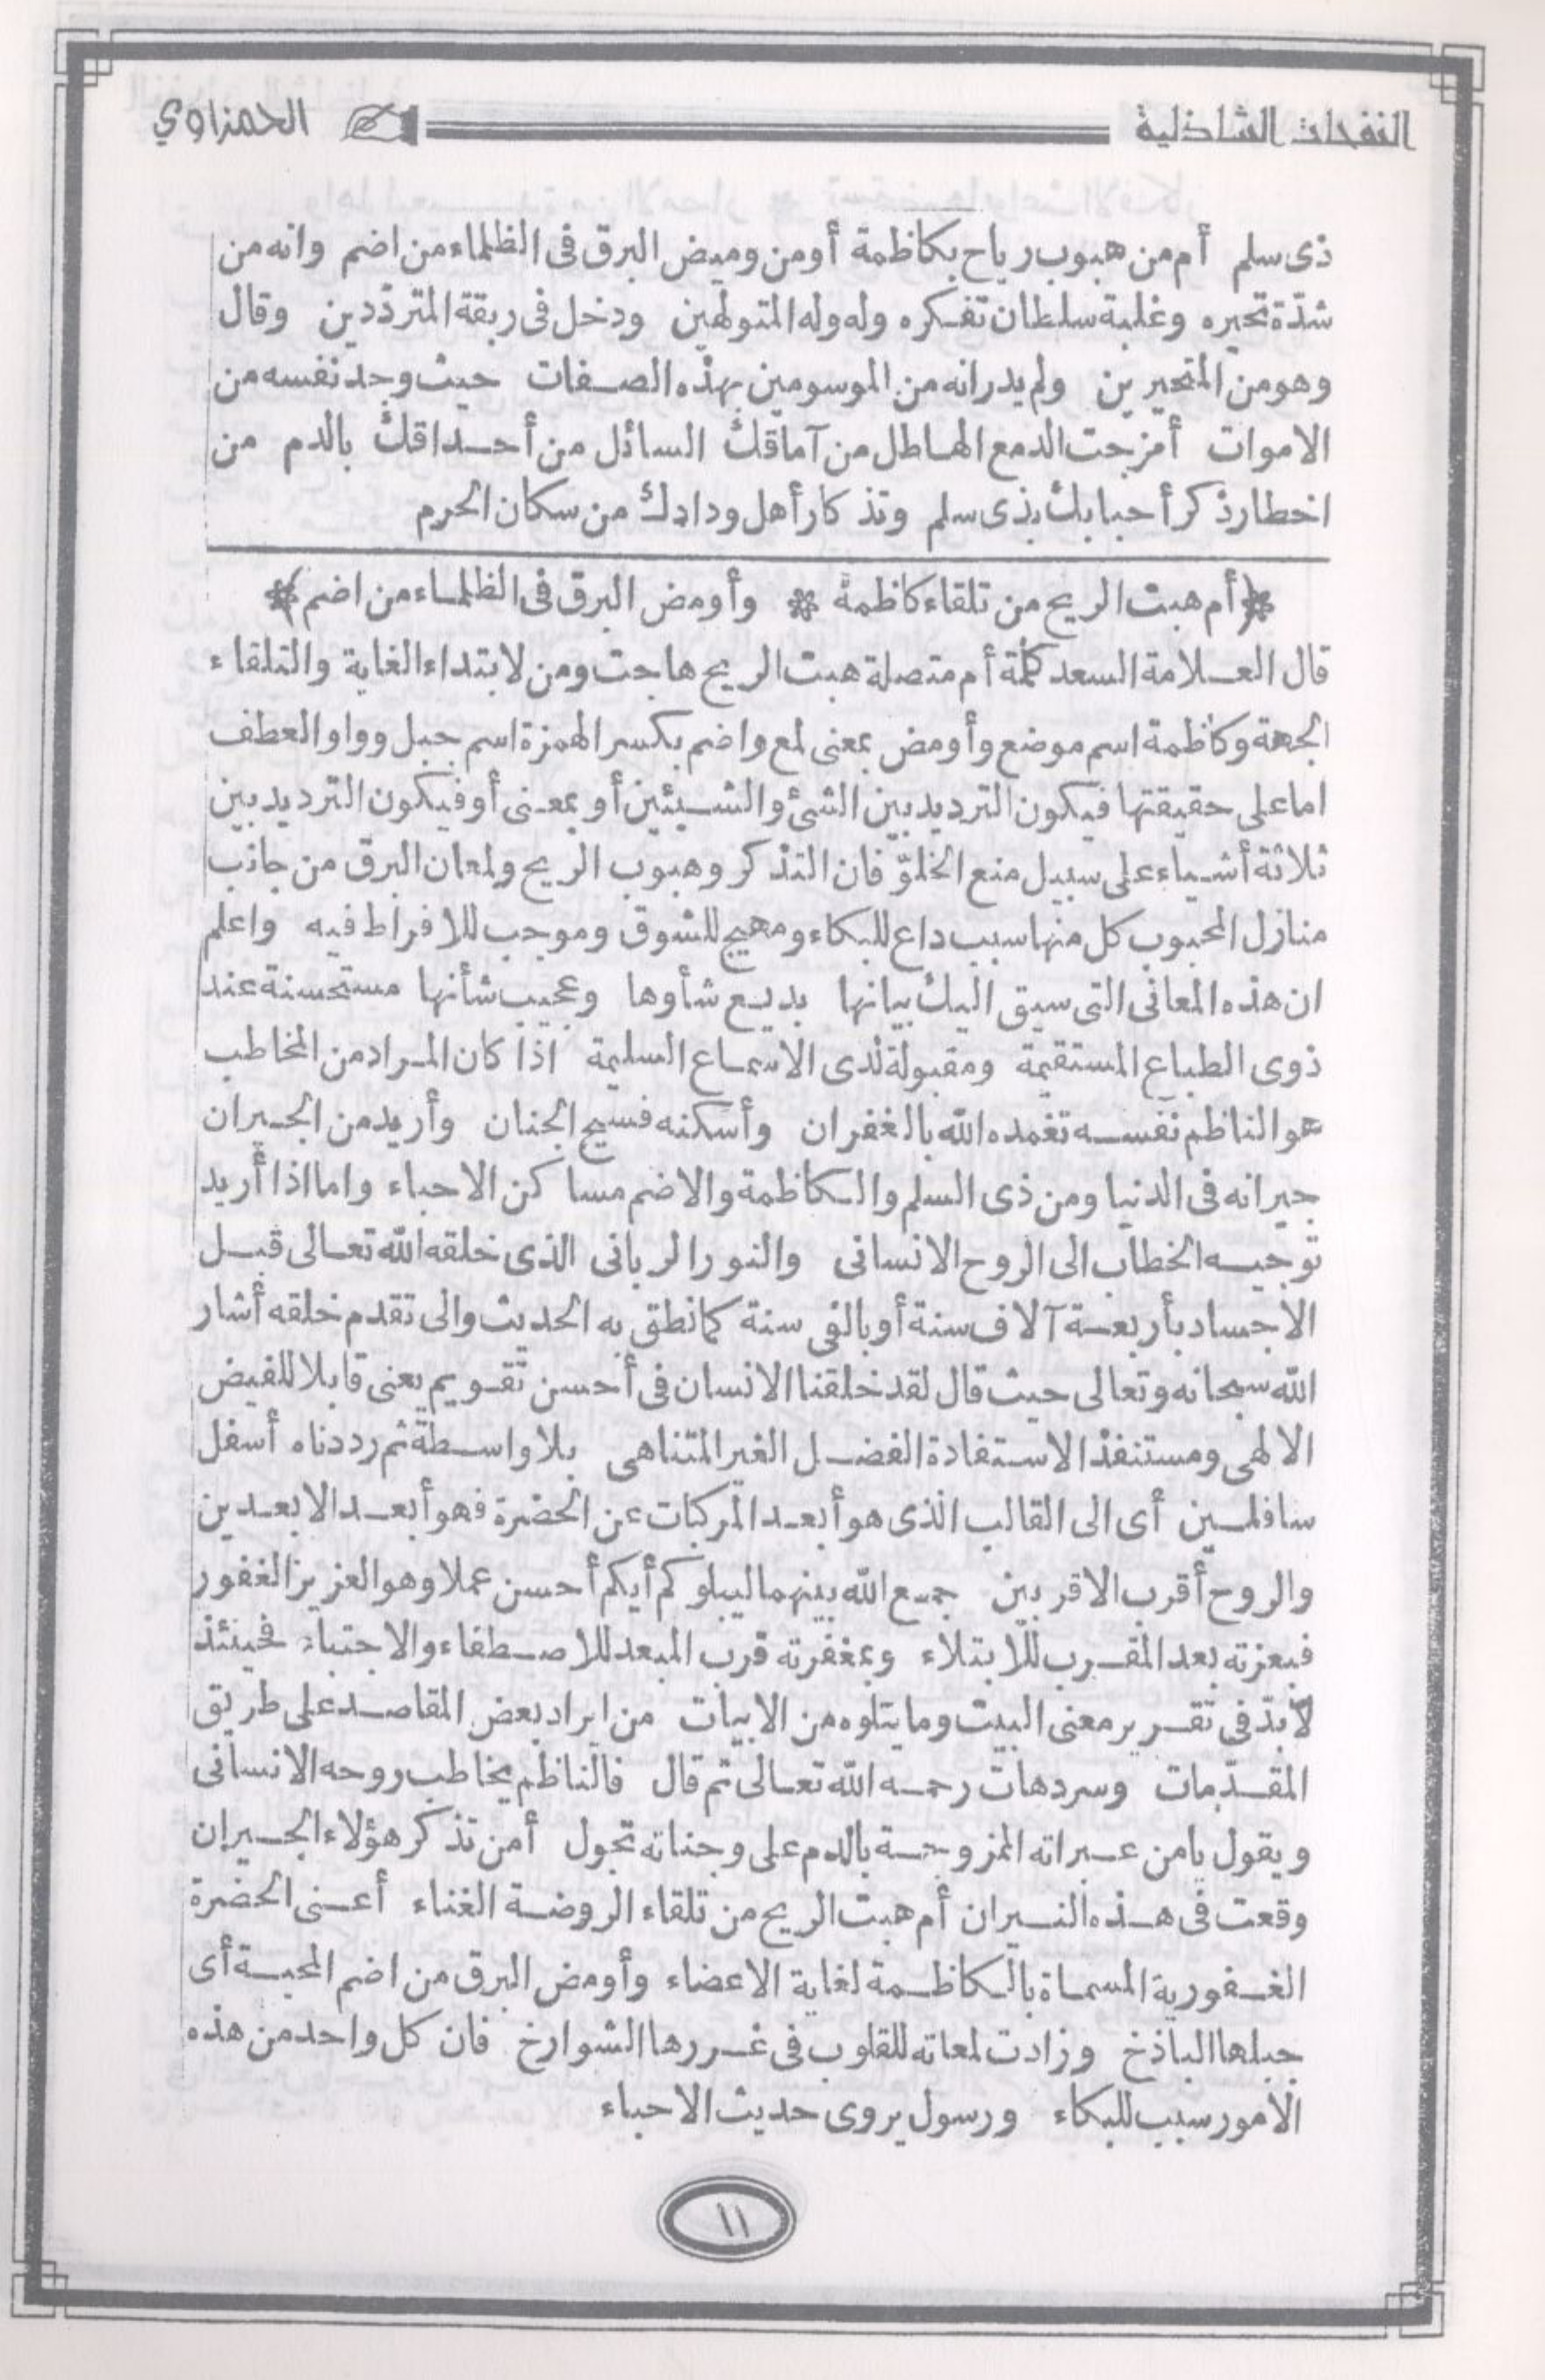 النفحات الشاذلية الحمزاوي
ذى سلم أم من هبوب رياح بكاظمة أو من وميض البرق فى الظلماء من اضم وانه من
شدّة تحيره وغلبة سلطان تفكره وله وله المتولهين ودخل فى ربقة المتردّدين وقال
وهو من المتحيرين ولم يدر انه من الموسومين بهذه الصفات حيث وجد نفسه من
الاموات أمزجت الدمع الهاطل من آماقك السائل من أحداقك بالدم من
اخطار ذكر أحبابك بذى سلم وتذكار أهل ودادك من سكان الحرم
﴿أم هبت الريح من تلقاء كاظمة * وأومض البرق فى الظلماء من اضم﴾
قال العلامة السعد كلمة أم متصلة هبت الريح هاجت ومن لابتداء الغاية والتلقاء
الجهة وكاظمة اسم موضع وأومض بمعنى لمع واضم بكسر الهمزة اسم جبل وواو العطف
اما على حقيقتها فيكون الترديد بين الشئ والشيئين أو بمعنى أو فيكون الترديد بين
ثلاثة أشياء على سبيل منع الخلوّ فان التذكر وهبوب الريح ولمعان البرق من جانب
منازل المحبوب كل منها سبب داع للبكاء ومهيج للشوق وموجب للافراط فيه واعلم
ان هذه المعانى التى سيق اليك بيانها بديع شأوها وعجيب شأنها مستحسنة عند
ذوى الطباع المستقيمة ومقبولة لدى الاسماع السليمة اذا كان المراد من المخاطب
هو الناظم نفسه تغمده الله بالغفران وأسكنه فسيح الجنان وأريد من الجيران
جيرانه فى الدنيا ومن ذى السلم والكاظمة والاضم مساكن الاحباء واما اذا أريد
توجيه الخطاب الى الروح الانسانى والنور الربانى الذى خلقه الله تعالى قبل
الاجساد بأربعة آلاف سنة أو بالفى سنة كما نطق به الحديث والى تقدم خلقه أشار
الله سبحانه وتعالى حيث قال لقد خلقنا الانسان فى أحسن تقويم يعنى قابلا للفيض
الالهى ومستنفذ الاستفادة الفضل الغير المتناهى بلا واسطة ثم رددناه أسفل
سافلين أى الى القالب الذى هو أبعد المركبات عن الحضرة فهو أبعد الابعدين
والروح أقرب الاقربين جمع الله بينهما ليبلوكم أيكم أحسن عملا وهو العزيز الغفور
فبعزته بعد المقرب للابتلاء وبمغفرته قرب المبعد للاصطفاء والاجتباء فحينئذ
لابدّ فى تقرير معنى البيت وما يتلوه من الابيات من ايراد بعض المقاصد على طريق
المقدّمات وسردهات رحمه الله تعالى ثم قال فالناظم يخاطب روحه الانسانى
ويقول يا من عبراته الممزوجة بالدم على وجناته تجول أمن تذكر هؤلاء الجيران
وقعت فى هذه النيران أم هبت الريح من تلقاء الروضة الغناء أعنى الحضرة
الغفورية المسماة بالكاظمة لغاية الاعضاء وأومض البرق من اضم المحبة أى
جبلها الباذخ وزادت لمعاته للقلوب فى غررها الشوارخ فان كل واحد من هذه
الامور سبب للبكاء ورسول يروى حديث الاحباء
١١